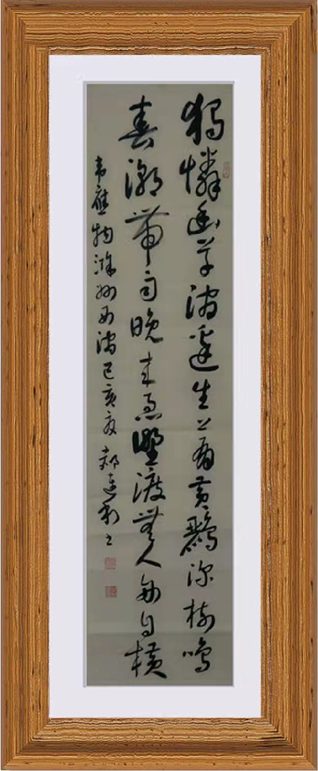 獨憐幽草澗邊生上有黃鸝深樹鳴
春潮帶雨晚來急野渡無人舟自橫
韋應物滁州西澗己亥